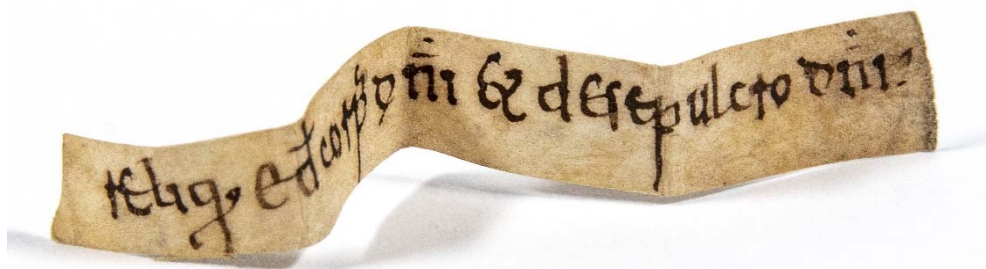 reliqꝫ e d̄ corp̄ dn̄i & de sepulcro dn̄i.